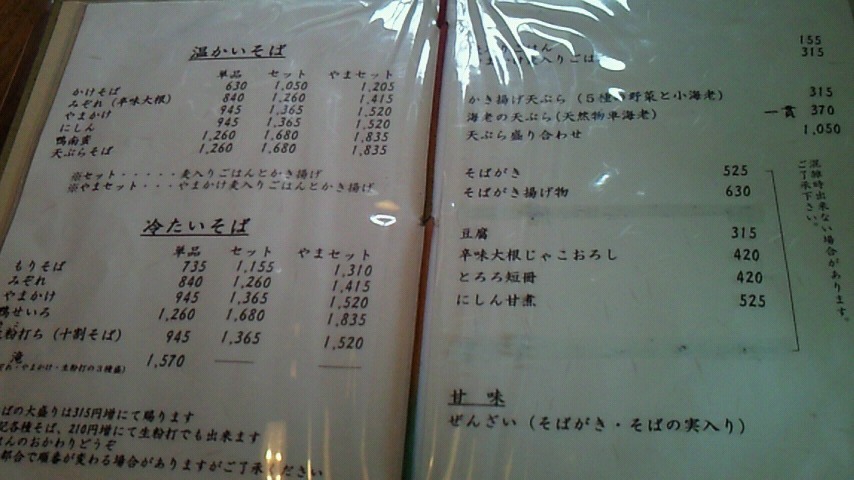 温かいそば
単品 セット やまセット
かけそば 630 1,050 1,205
みぞれ (辛味大根) 840 1,260 1,415
やまかけ 945 1,365 1,520
にしん 945 1,365 1,520
鴨南蛮 1,260 1,680 1,835
天ぷらそば 1,260 1,680 1,835
※セット・・・・・麦入りごはんとかき揚げ
※やまセット・・・やまかけ麦入りごはんとかき揚げ
冷たいそば
単品 セット やまセット
もりそば 735 1,155 1,310
みぞれ 840 1,260 1,415
やまかけ 945 1,365 1,520
鴨せいろ 1,260 1,680 1,835
粉打ち (十割そば) 945 1,365 1,520
滝 1,570
・やまかけ・生粉打の3種盛)
ばの大盛りは315円増にて賜ります
記各種そば、210円増にて生粉打でも出来ます
はんのおかわりどうぞ
都合で順番が変わる場合がありますがご了承ください
ごはん 155
麦入りごは 315
かき揚げ天ぷら (5種 野菜と小海老) 315
海老の天ぷら (天然物車海老) 一貫 370
天ぷら盛り合わせ 1,050
そばがき 525
そばがき揚げ物 630
豆腐 315
辛味大根じゃこおろし 420
とろろ短冊 420
にしん甘煮 525
混雑時出来ない場合があります。
ご了承下さい。
甘味
ぜんざい (そばがき・そばの実入り)